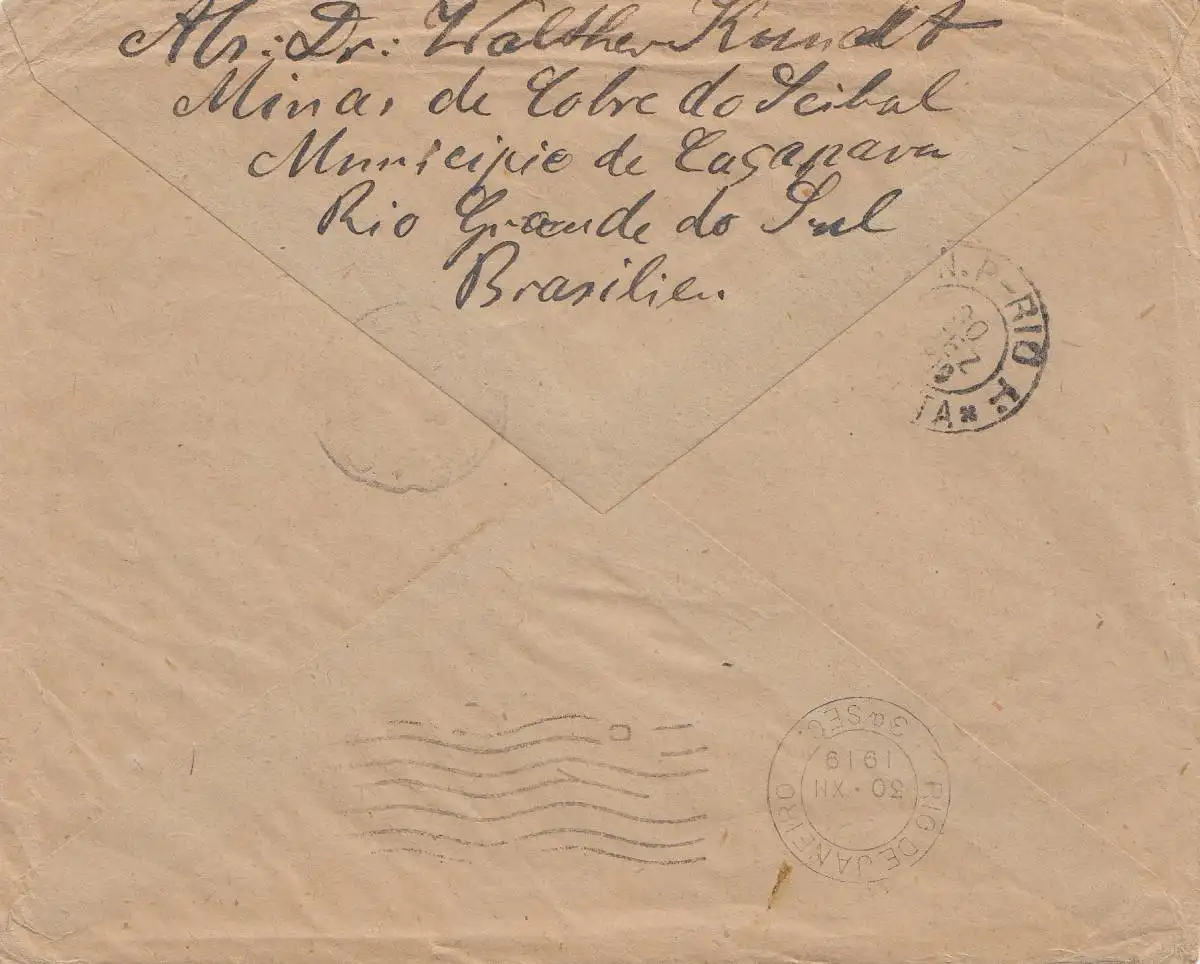 Abs: Dr: Walther Kundt
Minas de Cobre do Seibal
Municipio de Caçapava
Rio Grande do Sul
Brasilien.
N. P-RIO
TA
RIO DE JANEIRO
3a SEC.
30 • XII
1919